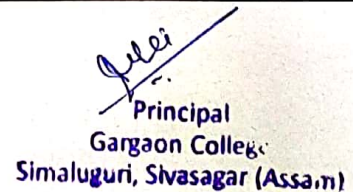 Principal
Gargaon College
Simaluguri, Sivasagar (Assam)